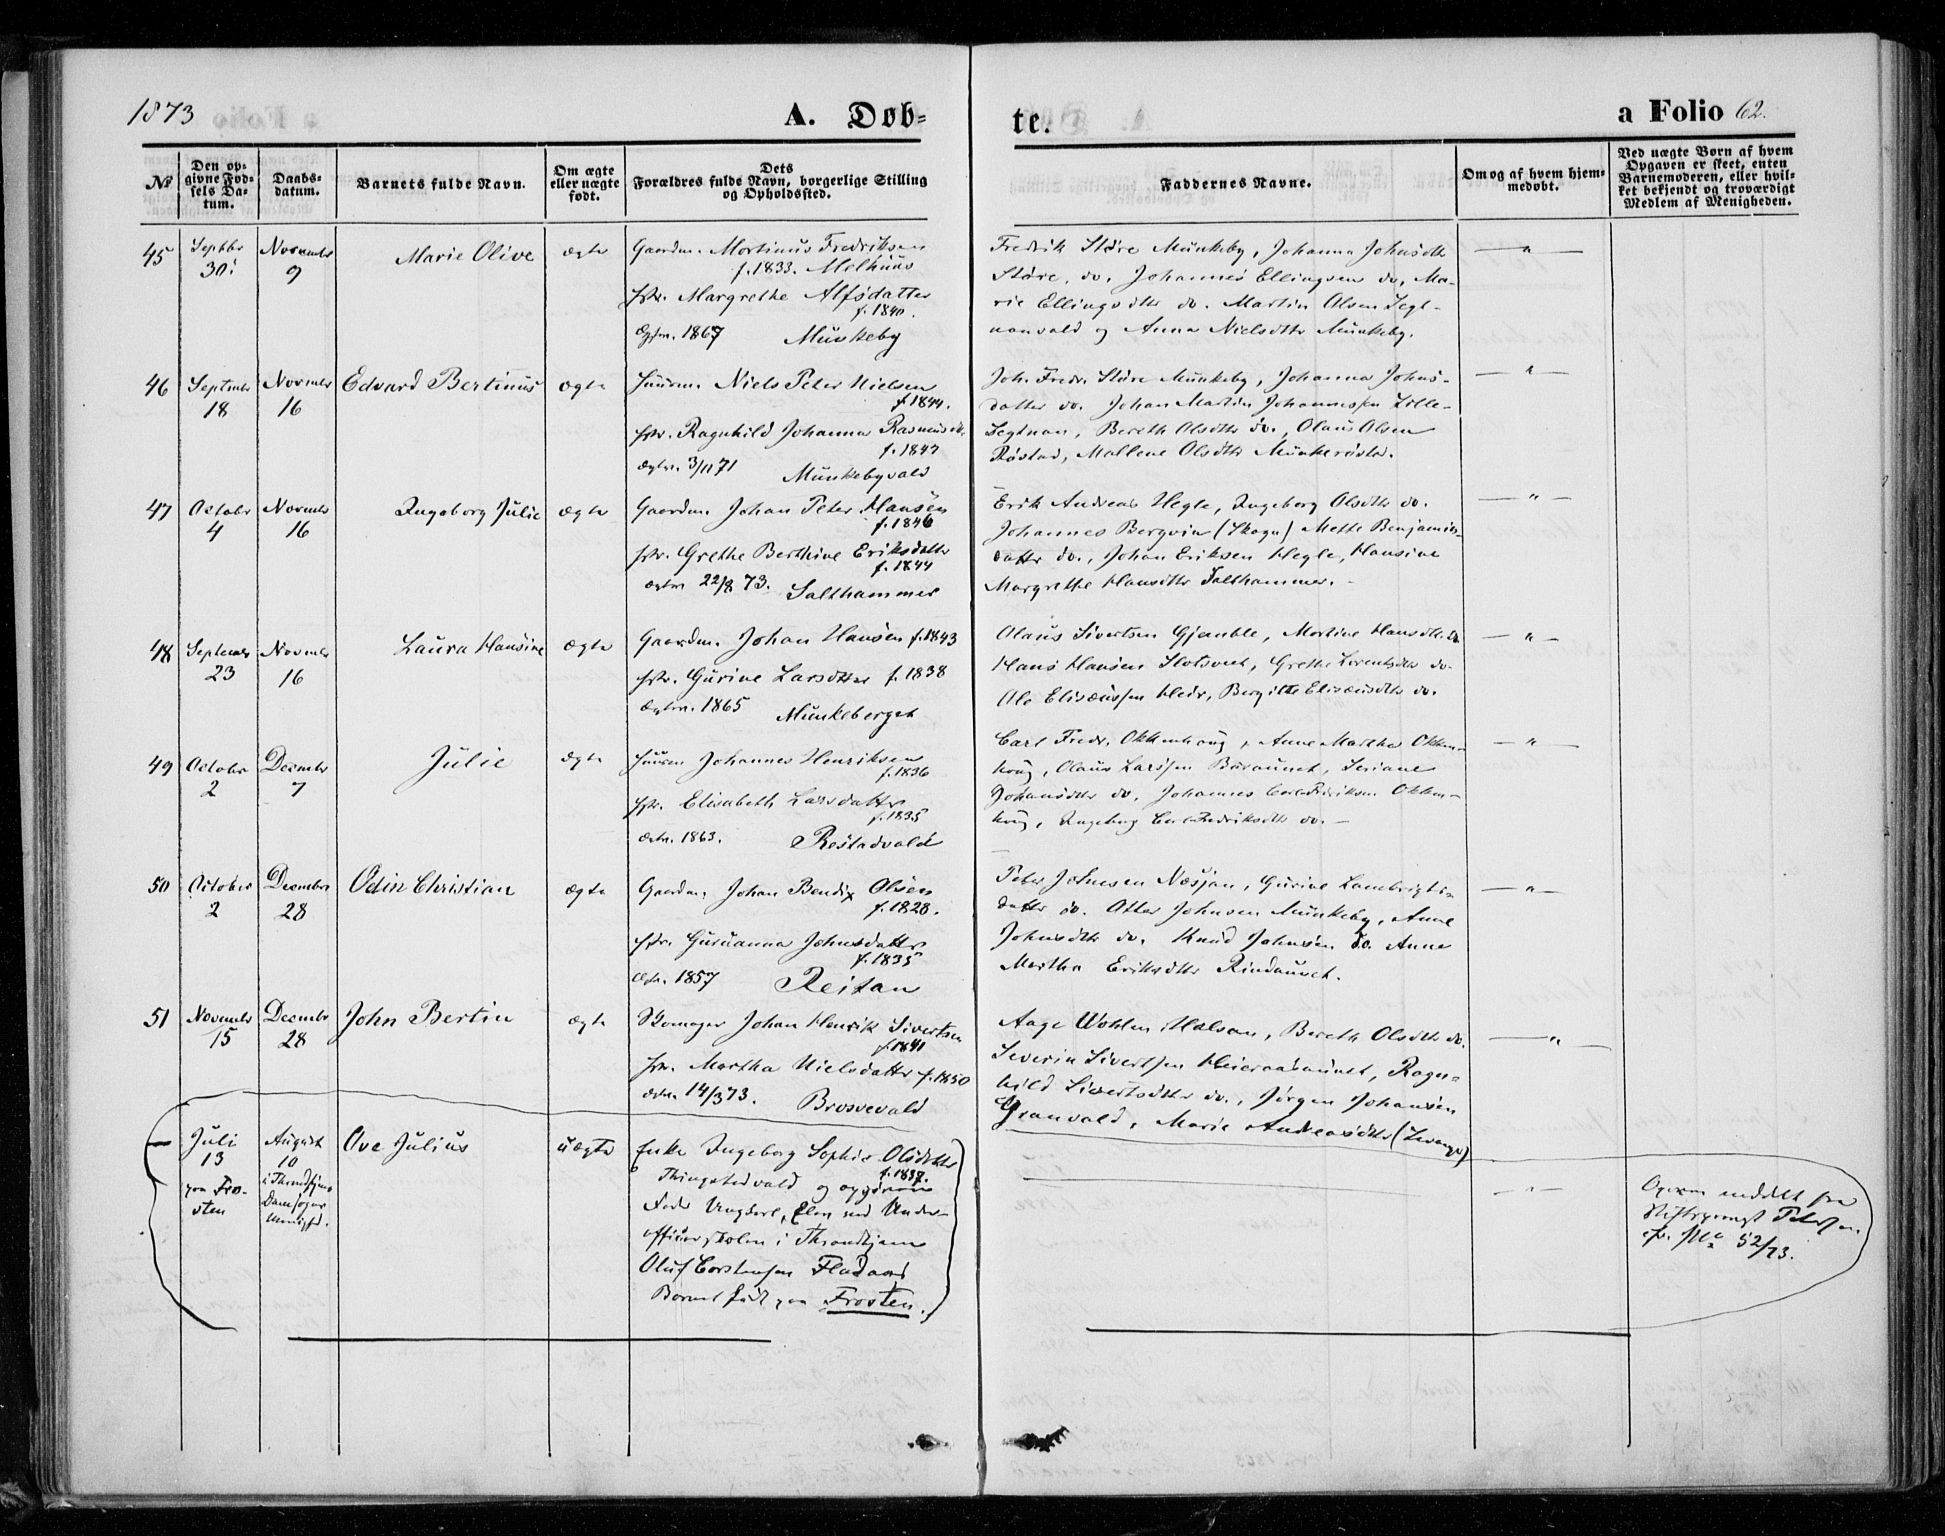 1873
A. Døb-
te.
a Folio 62.
No
Den op-
givne Fød-
sels Da-
tum.
Daabs-
datum.
Barnets fulde Navn.
Om ægte
eller uægte
født.
Dets
Forældres fulde Navn, borgerlige Stilling
og Opholdssted.
Faddernes Navne.
Om og af hvem hjem-
medøbt.
Ved uægte Børn af hvem
Opgaven er skeet, enten
Barnemoderen, eller hvil-
ket bekjendt og troværdigt
Medlem af Menigheden.
45
Septbr
30
November
9
Marie Olive
ægte
Gaardm. Mortinus Fredriksen
f. 1833. Melhuus
Margrethe Alfsdatter
f. 1840.
1867 Munkeby
Fredrik Støre Munkeby, Johanna Johnsdtr
Støre, do. Johannes Ellingsen do, Ma-
rie Ellingsdtr do. Martin Olsen Segt-
nanvald og Anna Nielsdtr Munkeby.
46
Septmbr
18
Novmbr
16
Edvard Bertinus
ægte
Huusm. Niels Peter Nielsen
f. 1844.
Ragnhild Johanna Rasmusdtr
f. 1847
3/11 71
Munkebyvald
Joh. Fredr. Støre Munkeby, Johanna Johns-
datter do. Johan Martin Johannessen Lille-
Segtnan, Bereth Olsdtr do., Olaus Olsen
Røstad, Mallene Olsdtr
47
Octobr
4
Novmbr
16
Ingeborg Julie
ægte
Gaardm. Johan Peter Hansen
f. 1846
Grethe Berthine Eriksdatter
f. 1844
22/8 73. Salthammer
Erik Andreas Hegle, Ingeborg Olsdtr do.
Johannes Bergvin (Skogn) Mette Benjamins-
datter do., Johan Eriksen Hegle, Hansine
Margrethe Hansdtr Salthammer.
48
September
23
Novmbr
16
Laura Hansine
ægte
Gaardm. Johan Hansen f. 1843
Gurine Larsdtter f. 1838
1865 Munkeberget
Olaus Sivertsen Gjemble, Martine Hansdtr do
Hans Hansen Slotsvet, Grethe Lorentsdtr do.
Ole Elisæussen Hedr, Bergitte Elisæusdtr do.
49
Octobr
2
Decmbr
7
Julie
ægte
Huusm Johannes Henriksen
f. 1836
Elisabeth Larsdatter
f. 1835
1863. Røstadvald
Carl Fredr. Okkenhoug, Anne Martha Okken-
houg, Olaus Larssen Buraunet, Seriane
Johansdtr do. Johannes Carl Fredriksen Okken-
houg, Ingeborg Carl Fredriksdtr do. —
50
October
2
December
28
Odin Christian
ægte
Gaardm. Johan Bendix Olsen
f. 1828.
Guruanna Johnsdatter
f. 1835
1857 Reitan
Peter Johnsen Næsjan, Gurine Lambrigts-
datter do. Otter Johnsen Munkeby, Anne
Johnsdtr do. Knud Johnsen do. Anne
Martha Eriksdtr Rindaunet.
51
November
15
Decmbr
28
John Bertin
ægte
Skomager Johan Henrik Sivertsen
f. 1841
Martha Nielsdatter f. 1850
14/3 73. Brosvevald
Aage Wohlen Halsan, Bereth Olsdtr do.
Severin Sivertsen Heieraasaunet, Ragn-
hild Sivertsdtr do., Jørgen Johansen
Granvald, Marie Andreasdtr (Levanger)
—
Juli
13
paa Fro-
sten
August
10
i Throndhjems
Domsogns
Menighed.
Ove Julius
uægte
Enke Ingeborg Sophie Olsdatter
f. 1837.
Thingstedvald og opgiven
Fader Ungkarl, Elev ved Under-
officerskolen i Throndhjem
Oluf Corstensen Fladaas
Barnet født paa Frosten.
Opgaven meddelt fra
Stiftsprovst Petersen
No 52/73.